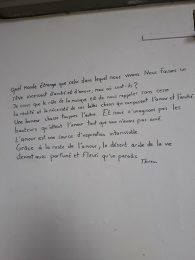 Quel monde étrange que celui dans lequel nous vivons. Nous faisons un
rêve incessant d'amitié et d'amour, mais où sont-ils ?
Je crois que le rôle de la musique est de nous rappeler sans cesse
la réalité et la nécessité de ces belles choses qui composent l'amour et l'amitié
Une humeur chasse toujours l'autre. Et nous n'imaginons pas les
hauteurs qu'atteint l'amour tant que nous n'avons pas aimé.
L'amour est une source d'inspiration intarissable.
Grâce à la rosée de l'amour, le désert aride de la vie
devient aussi parfumé et fleuri qu'un paradis